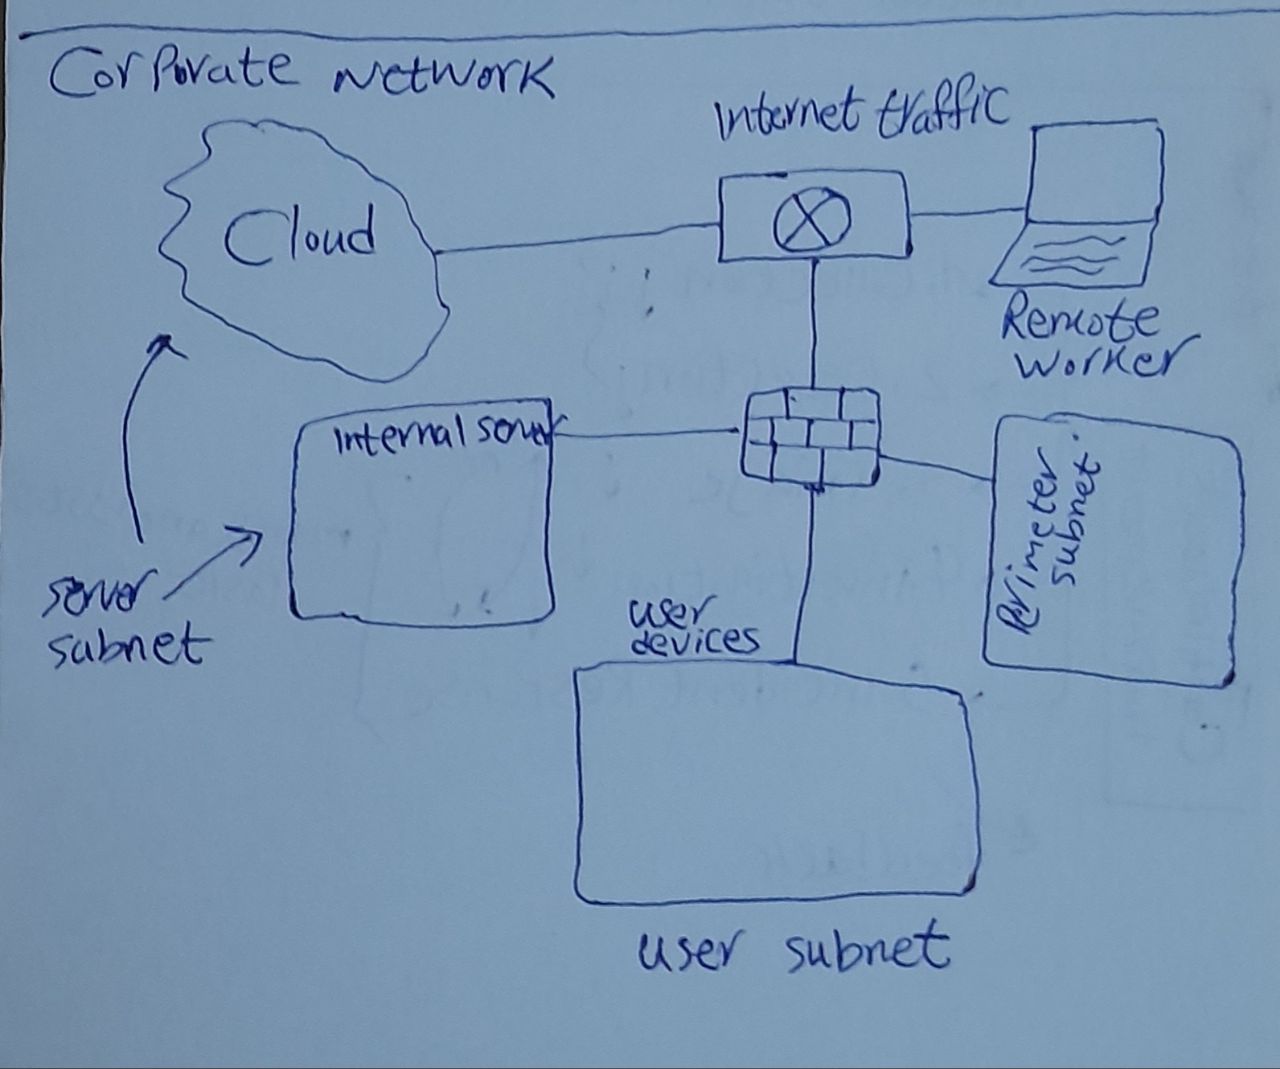 Corporate Network
Internet traffic
Cloud
Remote
worker
Internal server
Perimeter
subnet.
server
subnet
user
devices
user subnet